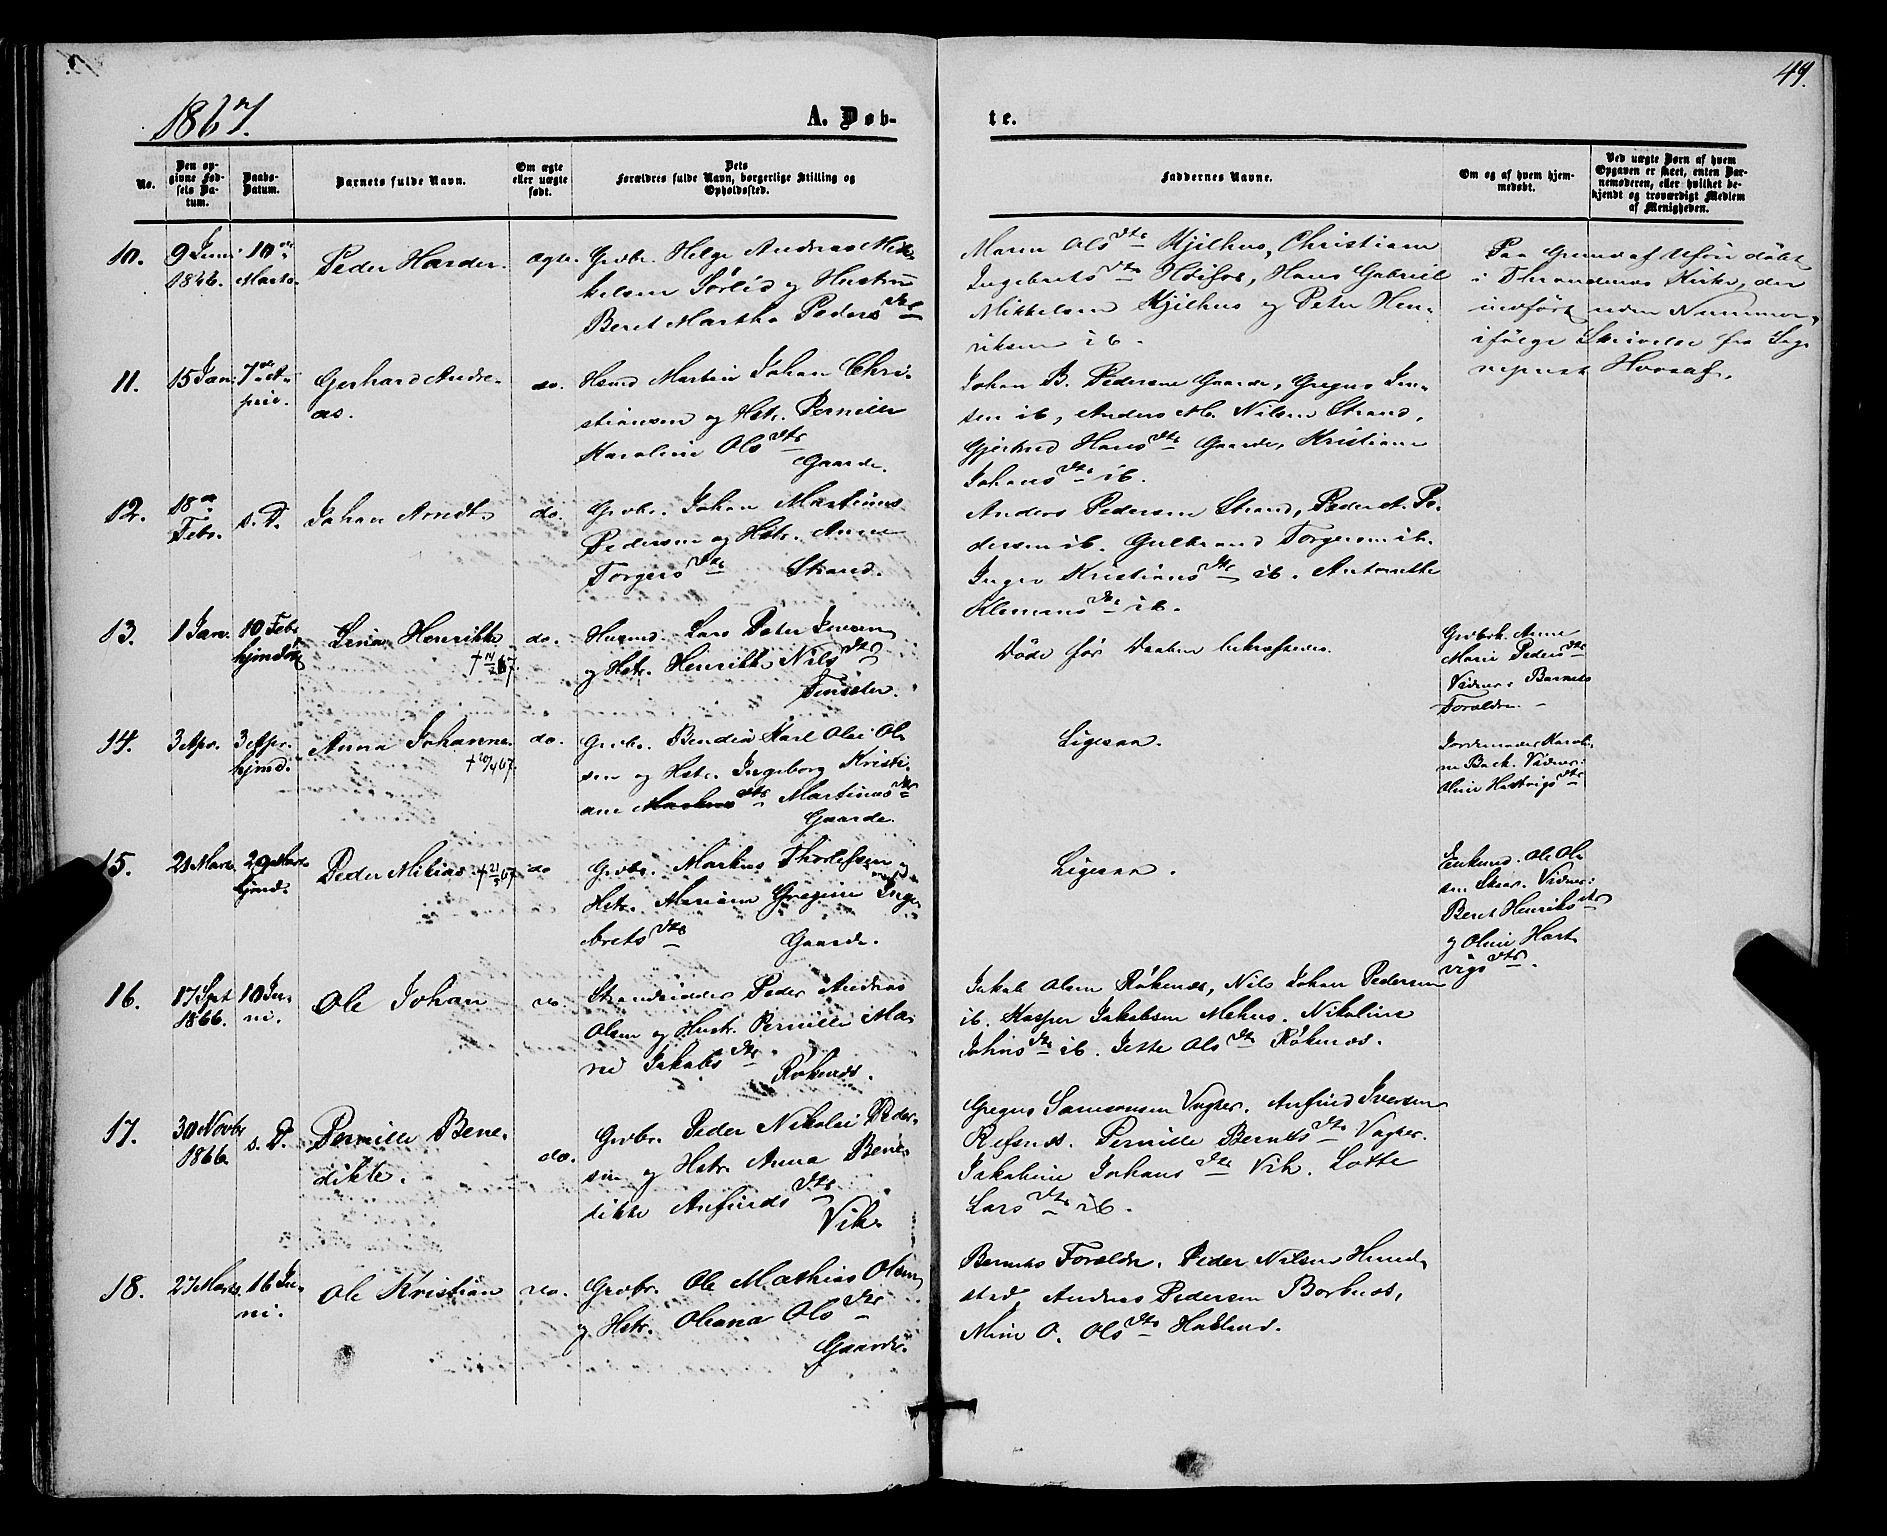 49.
1867.
A. Døb-
te.
No.
Den op-
givne Fød-
sels Da-
tum.
Daabs-
Datum.
Barnets fulde Navn.
Om ægte
eller uægte
født.
Dets
Forældres fulde Navn, borgerlige Stilling og
Opholdssted.
Faddernes Navne.
Om og af hvem hjem-
medøbt.
Ved uægte Børn af hvem
Opgaven er skeet, enten Bar-
nemoderen, eller hvilket be-
kjendt og troværdigt Medlem
af Menigheden.
10.
9 Juni
1866.
10de
Marts.
Peder Harder.
ægte.
Grdbr. Helge Andreas Mik-
kelsen Sørlid og Hustru
Beret Martha Pedersdtr
Maren Olsdtr Kjilhus, Christiane
Ingebrigtsdtr Høifos, Hans Gabriel
Mikkelsen Kjilhus og Peter Hen-
riksen ib.
Paa Grund af døbt
i Throndenæs Kirke, der
indført uden Nummer,
ifølge Skrivelse fra Sog-
nepræst
11.
15 Jan.
7de A-
pril.
Gerhard Andre-
as.
do.
Hsmd Martin Johan Chri-
stiansen og Hstr. Pernille
Karoline Olsdtr
Gaarde.
Johan B. Pedersen Gaarde, Gregus Jen-
sen ib, Anders M. Nilsen Strand,
Gjertrud Hansdtr Gaarde, Kristiane
Johansdtr ib.
12.
18de
Febr.
s. D.
Johan Arndt
do.
Grdbr. Johan Martinus
Pedersen og Hstr. Anne
Torgersdtr Strand.
Anders Pedersen Strand, Peder A. Pe-
dersen ib. Gulbrand Torgersen ib.
Inger Kristiansdtr ib. Antonette
Klemensdtr ib.
13.
1 Jan.
10 Febr
hjemdøbt
Lina Henrikke
† 14/2 67.
do.
Husmd. Lars Peter Jensen
og Hstr. Henrikke Nilsdtr
Døde før Daaben bekræftedes.
Grdbrk. Anne
Marie Pedersdtr
Vidner: Barnets
Forældre. -
14.
3 Apr.
3 Apr.
hjemd.
Anna Johanne.
† 10/4 67.
do.
Grdbr. Bendix Karl Olai Ol-
sen og Hstr. Ingeborg Kristi-
ane Martinusdtr
Gaarde.
Ligesaa.
Jordemoder Karoli-
ne Back. Vidner:
Oline Hartvigsdtr
15.
28 Marts
29 Marts
hjemd.
Peder Mikias † 21/5 67
do
Grdbr. Markus Thorlefsen og
Hstr. Mariane Gregine Inge-
bretsdtr Gaarde.
Ligesaa.
Enkemd. Ole Ol-
sen Skar. Vidner:
Beret Henriksdtr
og Oline Hart-
vigsdtr.
16.
17 Sept
1866.
10 Ju-
ni.
Ole Johan
do.
Strandsidder Peder Andreas
Olsen og Hustr. Pernille Ma-
rie Jakobsdtr
Røkenæs.
Jakob Olsen Røkenæs, Nils Johan Pedersen
ib. Kasper Jakobsen Melhus. Nikoline
Johnsdtr ib. Jette Olsdtr Røkenæs.
17.
30 Novbr
1866.
s. D.
Pernille Bene-
dikte.
do.
Grdbr. Peder Nikolai Peder-
sen og Hstr. Anna Bene-
dikte Anfindsdtr
Vik.
Gregus Samsonsen Vagter. Anfind Iversen
Refsnæs. Pernille Berntsdtr Vagter.
Jakobine Johansdtr Vik. Lotte
Larsdtr ib.
18.
27 Marts
16 Ju-
ni.
Ole Kristian
do.
Grdbr. Ole Mathias Olsen
og Hstr. Oleana Olsdtr
Gaarde.
Barnets Forældre. Peder Nilsen Hund-
stad. Andreas Pedersen Borknæs,
Mine O. Olsdtr Halland.